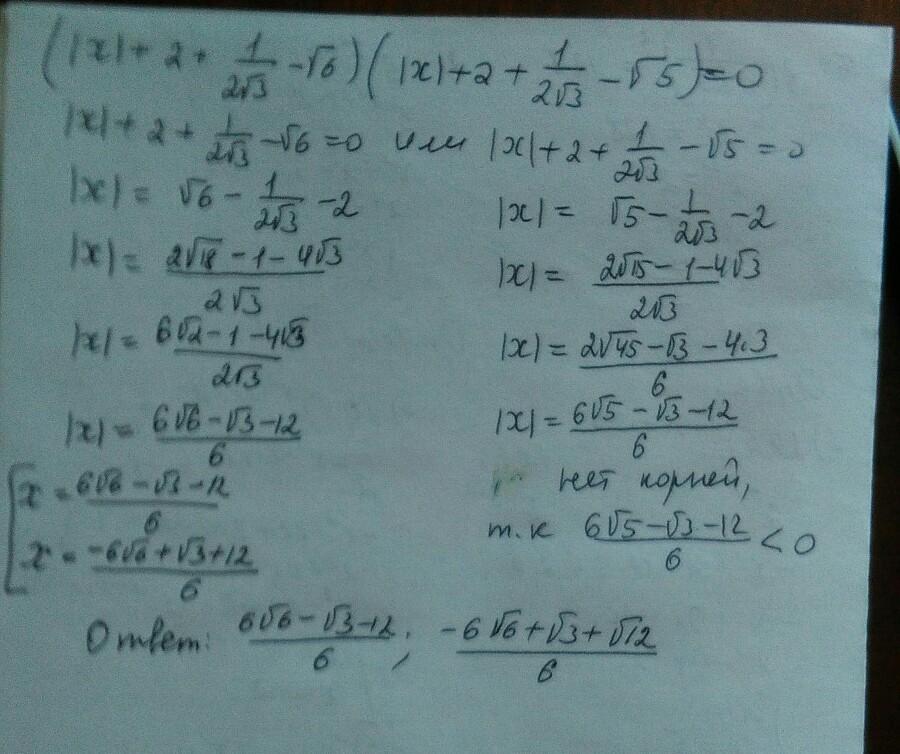 (|x| + 2 + 1/(2√3) − √6)(|x| + 2 + 1/(2√3) − √5) = 0
|x| + 2 + 1/(2√3) − √6 = 0 или |x| + 2 + 1/(2√3) − √5 = 0
|x| = √6 − 1/(2√3) − 2
|x| = (2√18 − 1 − 4√3)/(2√3)
|x| = (6√2 − 1 − 4√3)/(2√3)
|x| = (6√6 − √3 − 12)/6
x = (6√6 − √3 − 12)/6
x = (−6√6 + √3 + 12)/6
|x| = √5 − 1/(2√3) − 2
|x| = (2√15 − 1 − 4√3)/(2√3)
|x| = (2√45 − √3 − 4·3)/6
|x| = (6√5 − √3 − 12)/6
нет корней,
т.к (6√5 − √3 − 12)/6 < 0
Ответ: (6√6 − √3 − 12)/6; (−6√6 + √3 + √12)/6